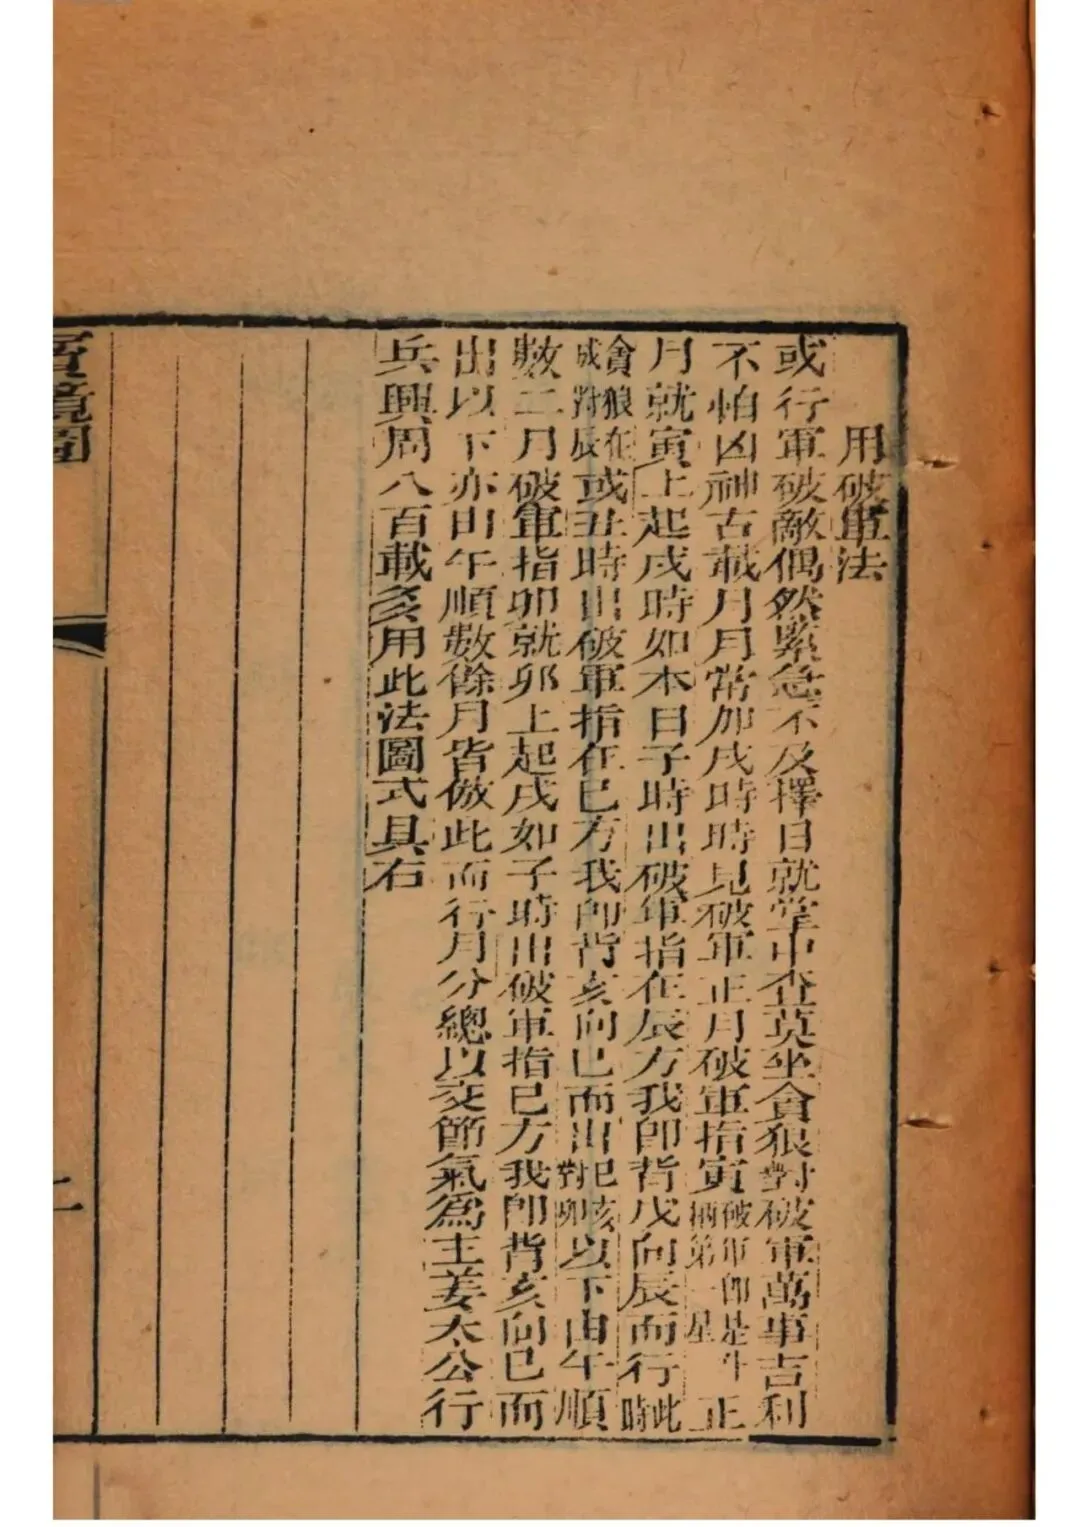 用破軍法
或行軍破敵偶然緊急不及擇日就掌中查莫坐貪狠對破軍萬事吉利
不怕凶神古載月月常加戌時時見破軍正月破軍指寅破軍即是斗柄第一星正
月就寅上起戌時如本日子時出破軍指在辰方我即背戊向辰而行此時
貪狼在戍對辰或丑時出破軍指在巳方我即背亥向巳而出犯亥對卿以下由午順
數二月破軍指卯就卯上起戌如子時出破軍指巳方我即背亥向巳而
出以下亦由午順數餘月皆倣此而行月分總以交節氣為主姜太公行
兵興周八百載多用此法圖式具右
寶鏡圖